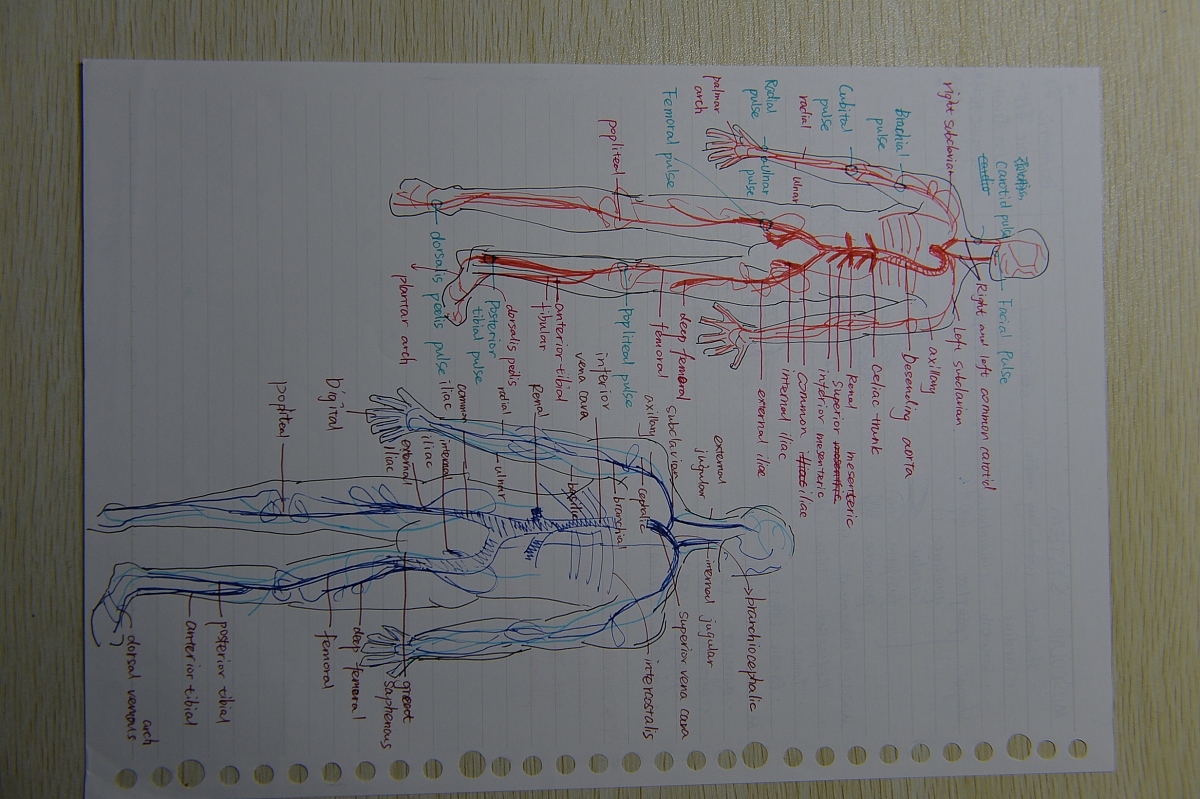 carotid pulse
Facial Pulse
right subclavian
Right and left common carotid
Brachial
pulse
Left subclavian
axillary
Desending aorta
Cubital
pulse
celiac trunk
radial
ulnar
Renal mesenteric
superior
inferior mesenteric
common iliac
internal iliac
external iliac
Radial
pulse
ulnar
pulse
palmar
arch
Femoral pulse
deep femoral
femoral
popliteal
popliteal pulse
anterior tibial
fibular
dorsalis pedis
Posterior
tibial pulse
dorsalis pedis pulse
plantar arch
brachiocephalic
external
jugular
internal jugular
superior vena cava
subclavian
axillary
cephalic
branchial
intercostalis
basilic
interior
vena cava
Renal
radial
ulnar
common
iliac
internal
iliac
external
iliac
Digital
great
saphenous
deep femoral
femoral
popliteal
posterior tibial
anterior tibial
dorsal venous
arch